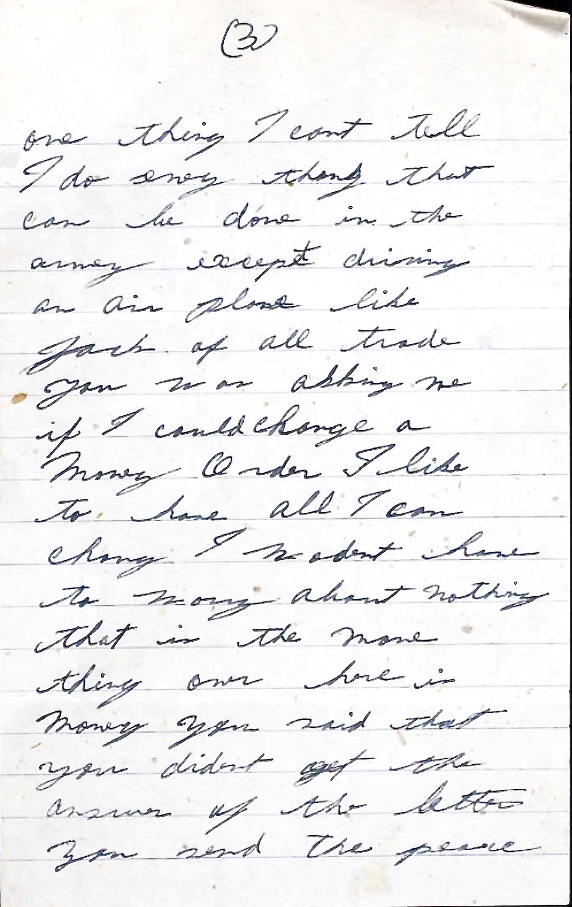 (3)
one thing I cant tell
I do evey thang that
can be done in the
armey except driving
an air plane like
Jack of all trade
you was asking me
if I could change a
Money Order I like
to have all I can
chang I wodent have
to worry about nothing
that is the mane
thing over here is
Money you said that
you dident get the
answer of the letter
you send the peaace